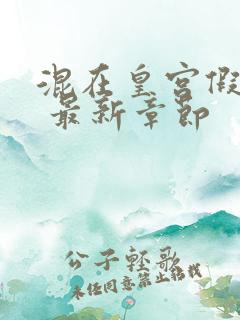 混在皇宫假
最新章节
公子轻歌
未经同意禁止转载